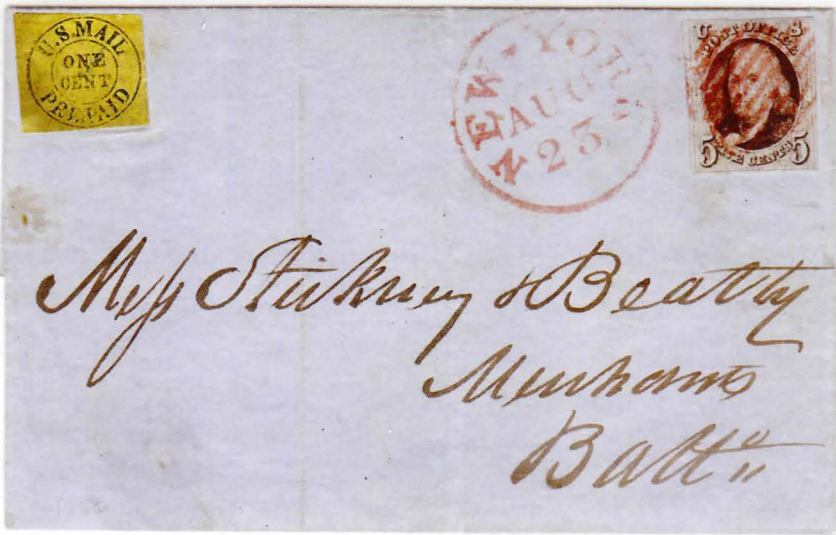 U.S.MAIL
ONE
CENT
PRE-PAID
NEW-YORK
AUG
23
U S
POST OFFICE
5 FIVE CENTS 5
Mess Stickney & Beatty
Merchants
Balto